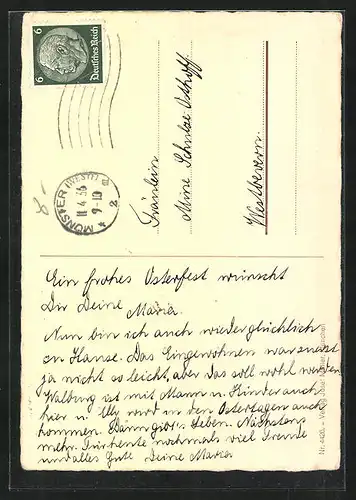 6 Deutsches Reich 6
MÜNSTER (WESTF)
11.4.36
9-10
2
Fräulein
Mine Schulze Osthoff
Westbevern.
Ein frohes Osterfest wünscht
Dir Deine Maria.
Nun bin ich auch wieder glücklich
zu Hause. Das Eingewöhnen war zuerst
ja nicht so leicht, aber das soll wohl werden
Walburg ist mit Mann u. Kinder auch
hier u. Elly wird in den Ostertagen auch
kommen. Dann gibt's Leben. Nächstens
mehr. Für heute nochmals viel Freude
und alles Gute Deine Maria